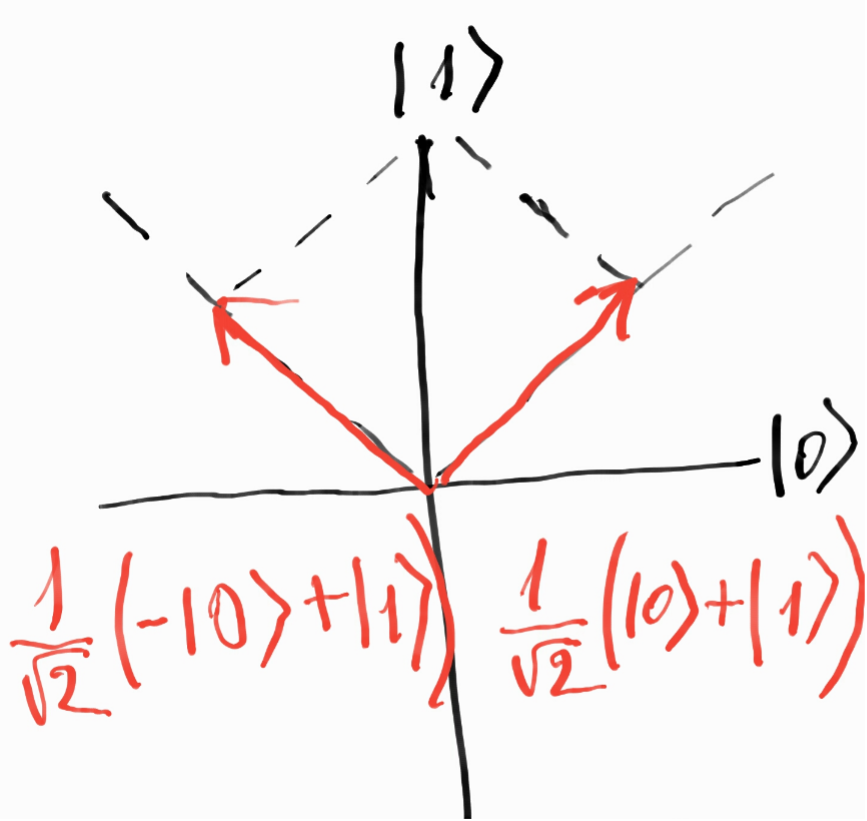 |1⟩
|0⟩
1/√2 (-|0⟩+|1⟩)
1/√2 (|0⟩+|1⟩)